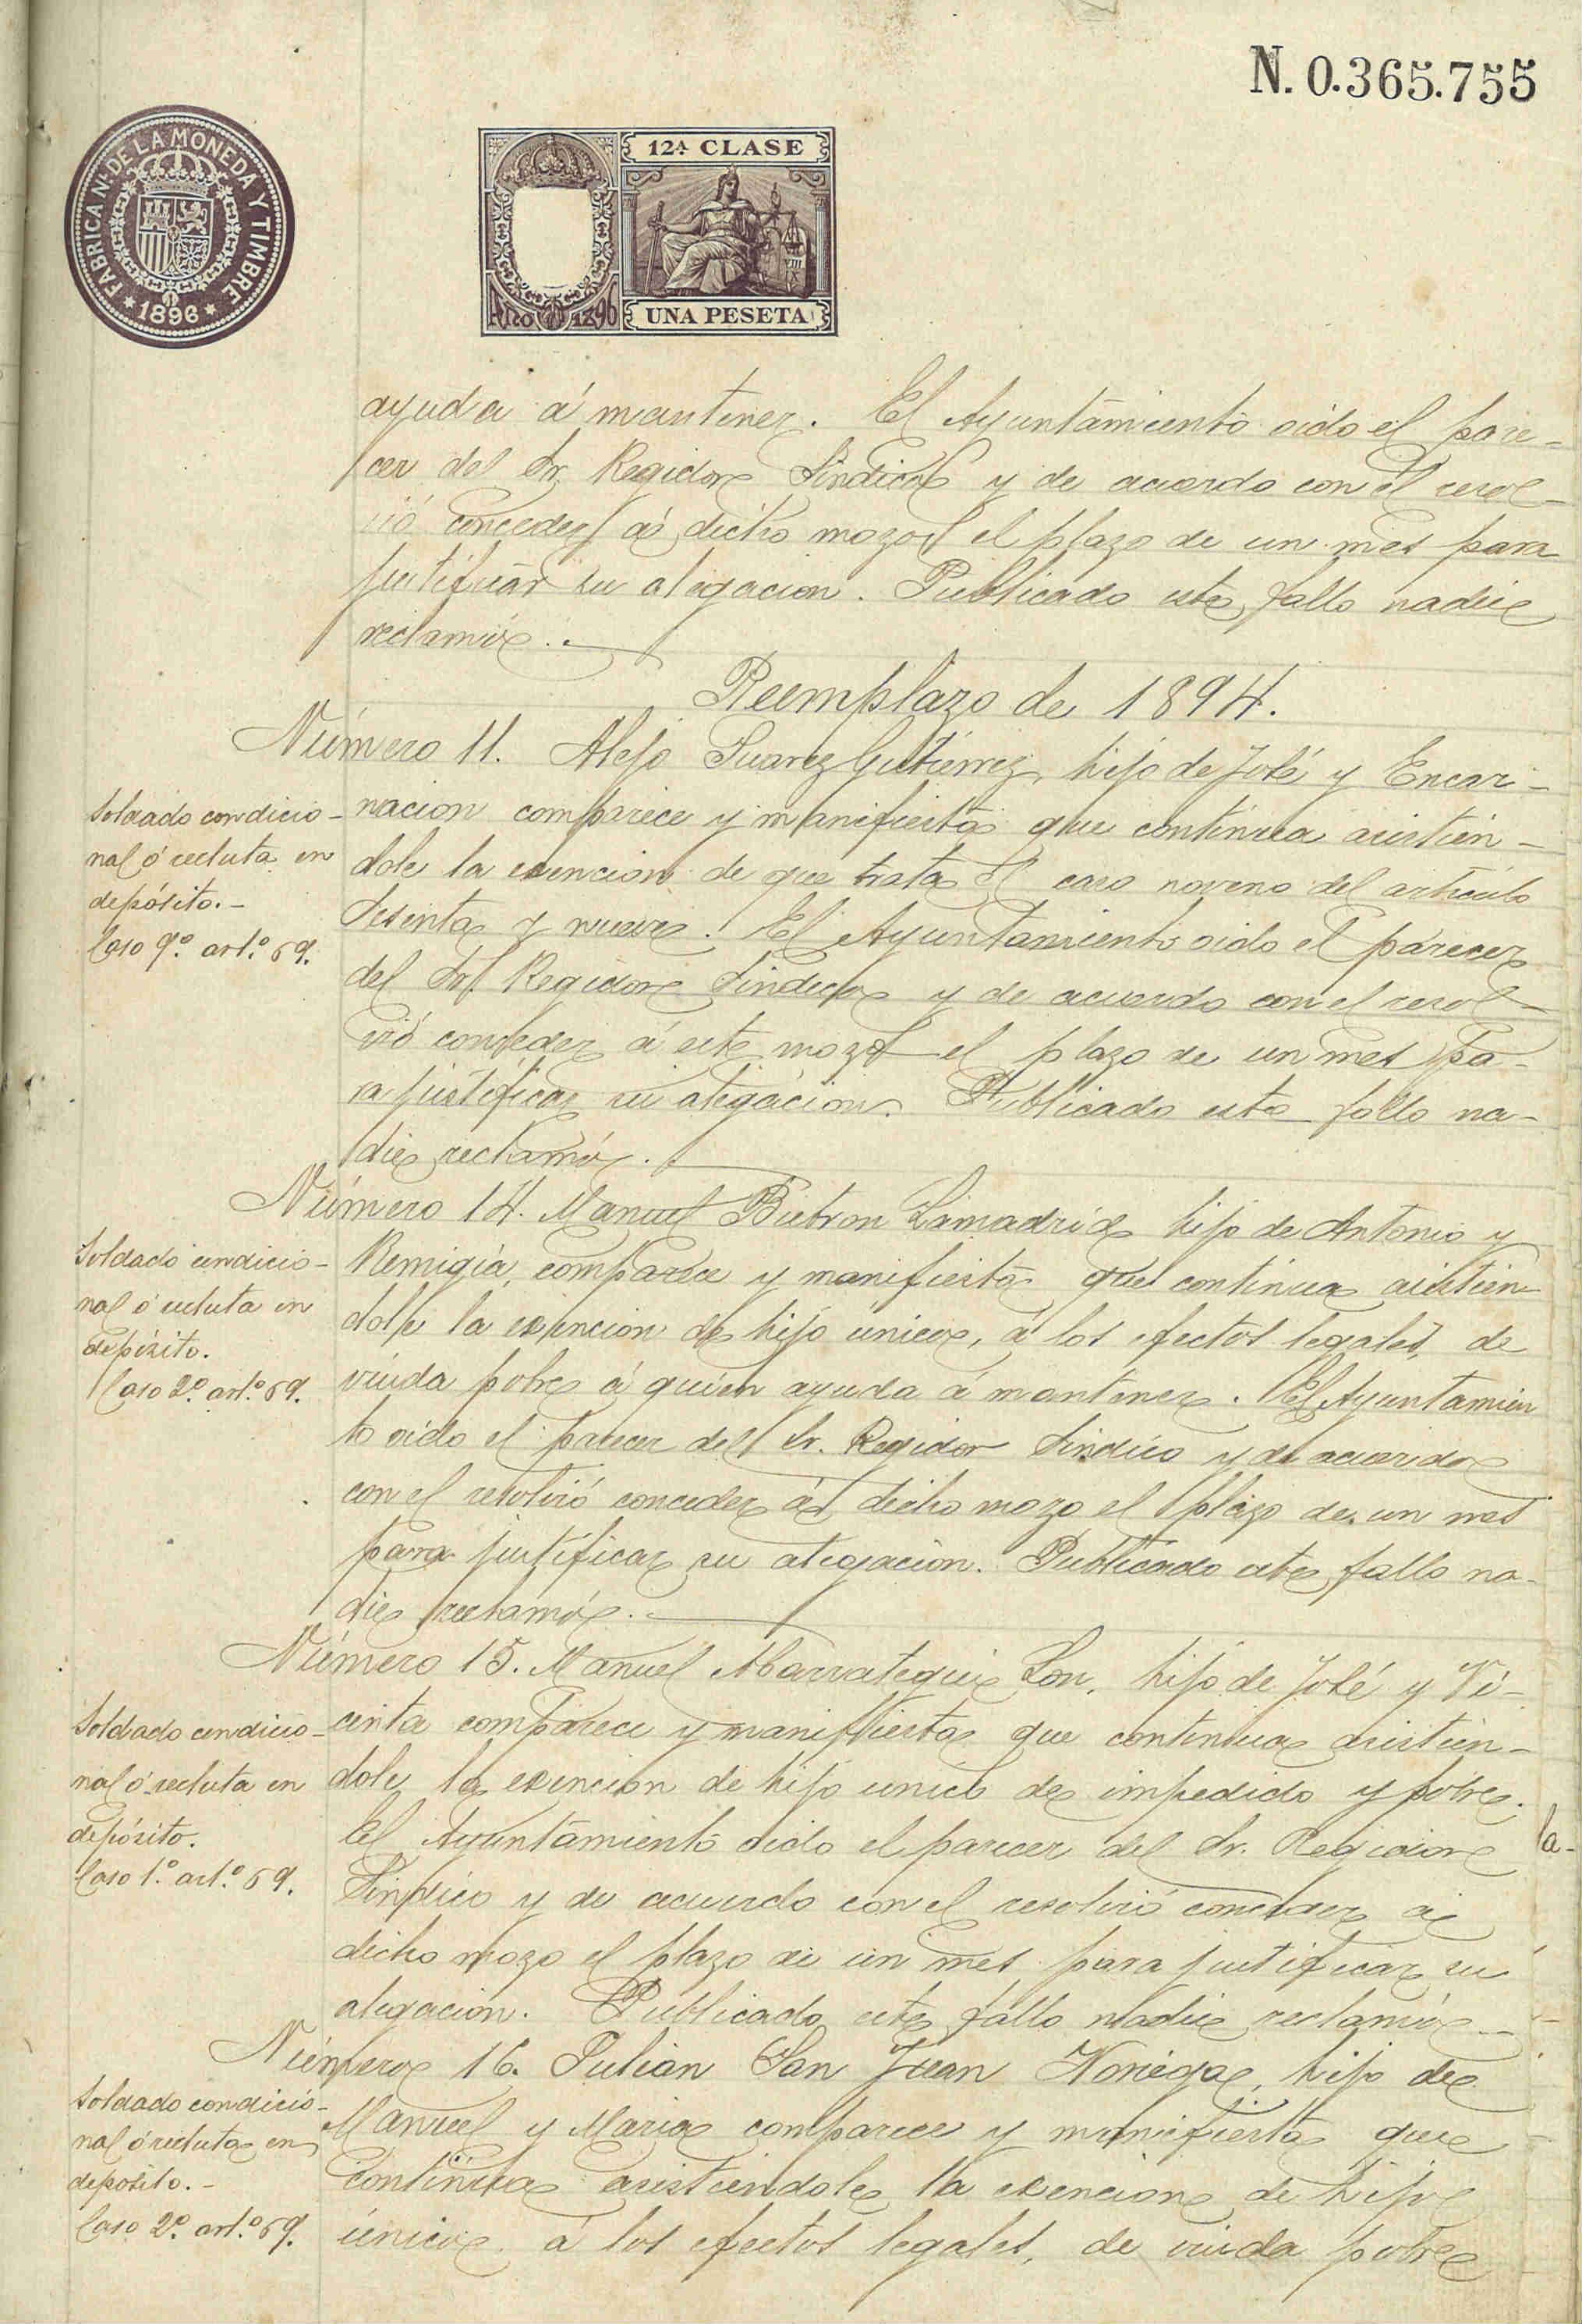 N. 0.365.755
FABRICA N.ᴸ DE LA MONEDA Y TIMBRE
* 1896 *
12ᴬ CLASE
AÑO DE 1896
UNA PESETA
ayuda á mantener. El Ayuntamiento oido el pare-
cer del Sr. Regidor Sindico y de acuerdo con el resol-
vió conceder á dicho mozo el plazo de un mes para
justificar su alegacion. Publicado este fallo nadie
reclamó.
Reemplazo de 1894.
Número 11. Alejo Suarez Gutierrez, hijo de José y Encar-
nacion comparece y manifiesta que continua asistien-
dole la exencion de que trata el caso noveno del articulo
sesenta y nueve. El Ayuntamiento oido el parecer
del Sr. Regidor Sindico y de acuerdo con el resol-
vió conceder á este mozo el plazo de un mes pa-
ra justificar su alegacion. Publicado este fallo na-
die reclamó.
Soldado condicio-
nal ó recluta en
depósito.-
Caso 9.º art.º 69.
Número 14. Manuel Buebron Lamadrid hijo de Antonio y
Remigia, comparece y manifiesta que continua asistien
dole la exencion de hijo unico, á los efectos legales, de
viuda pobre á quien ayuda á mantener. El Ayuntamien
to oido el parecer del Sr. Regidor Sindico y de acuerdo
con el resolvió conceder á dicho mozo el plazo de un mes
para justificar su alegacion. Publicado este fallo na-
die reclamó.
Soldado condicio-
nal ó recluta en
depósito.
Caso 2.º art.º 69.
Número 15. Manuel Abarrategui Lon, hijo de José y Vi-
centa comparece y manifiesta que continua asistien-
dole la exencion de hijo unico de impedido y pobre.
El Ayuntamiento oido el parecer del Sr. Regidor
Sindico y de acuerdo con el resolvió conceder á
dicho mozo el plazo de un mes para justificar su
alegacion. Publicado este fallo nadie reclamó
Soldado condicio-
nal ó recluta en
depósito.
Caso 1.º art.º 69.
la-
Número 16. Julian San Juan Noriega, hijo de
Manuel y Maria comparece y manifiesta que
continua asistiendole la exencion de hijo
único á los efectos legales, de viuda pobre
Soldado condicio-
nal ó recluta en
depósito.-
Caso 2.º art.º 69.